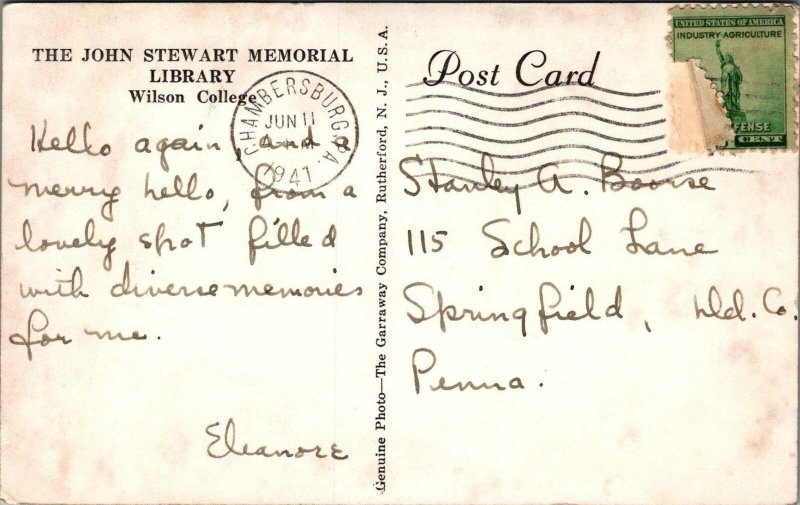 THE JOHN STEWART MEMORIAL
LIBRARY
Wilson College
Hello again, and a
merry hello, from a
lovely spot filled
with diverse memories
for me.
Eleanore
CHAMBERSBURG, PA.
JUN 11
1941
Genuine Photo—The Garraway Company, Rutherford, N. J., U. S. A.
Post Card
UNITED STATES OF AMERICA
INDUSTRY·AGRICULTURE
FENSE
CENT
Stanley A. Boorse
115 School Lane
Springfield, Del. Co.
Penna.